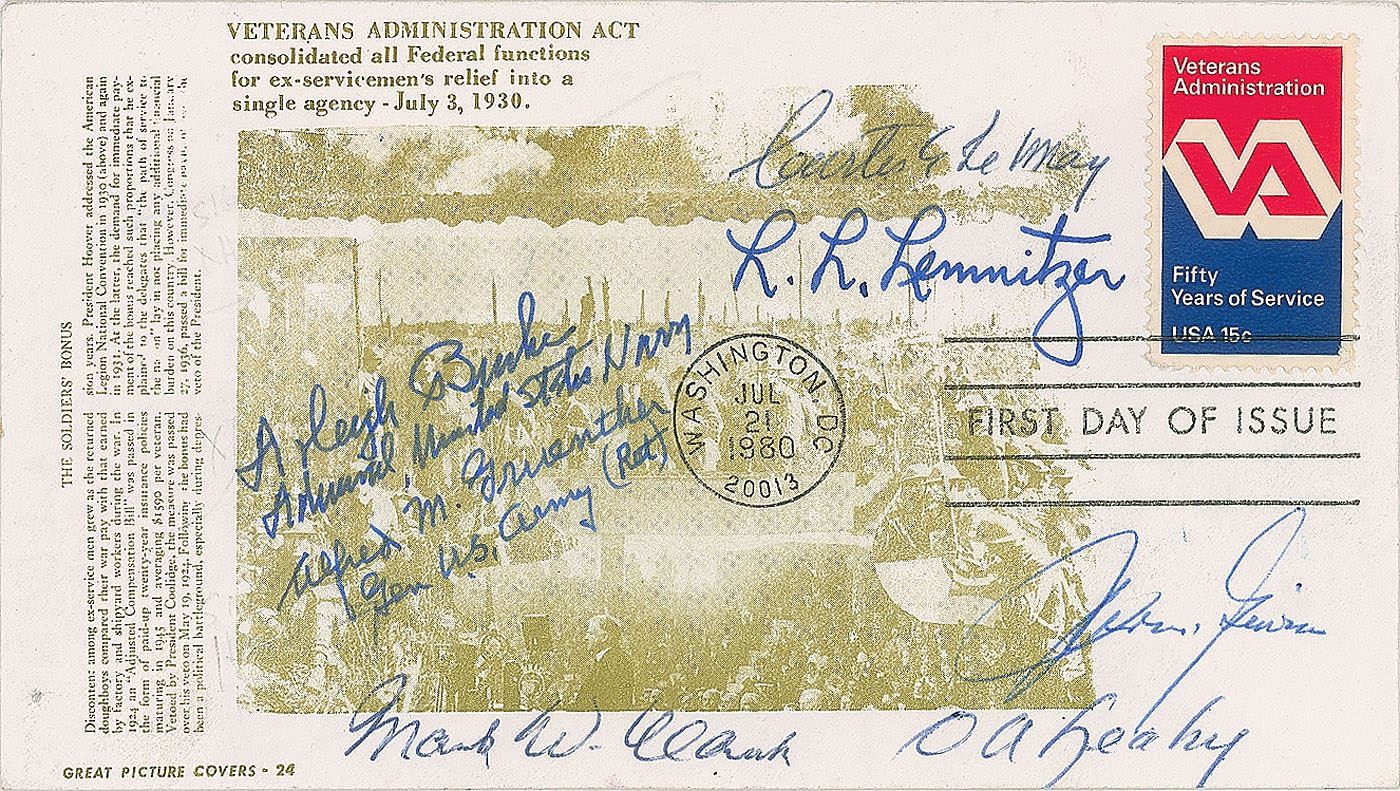 VETERANS ADMINISTRATION ACT
consolidated all Federal functions
for ex-servicemen's relief into a
single agency - July 3, 1930.
Veterans
Administration
VA
Fifty
Years of Service
USA 15c
Curtis E LeMay
L. L. Lemnitzer
Arleigh Burke
Admiral, United States Navy
Alfred M. Gruenther
Gen U.S. Army (Ret)
WASHINGTON, DC
JUL
21
1980
20013
FIRST DAY OF ISSUE
Mark W. Clark
THE SOLDIERS' BONUS
Disconten: among ex-service men grew as the returned
doughboys compared their war pay with that earned
by factory and shipyard workers during the war. In
1924 an "Adjusted Compensation Bill" was passed in
the form of paid-up twenty-year insurance policies
maturing in 1945 and averaging $1590 per veteran.
Vetoed by President Coolidge, the measure was passed
over his veto on May 19, 1924. Following the bonus had
been a political battleground, especially during depres-
sion years. President Hoover addressed the American
Legion National Convention in 1930 (above) and again
in 1931. At the latter, the demand for immediate pay-
ment of the bonus reached such proportions that he ex-
plained to the delegates that "the path of service to
the lay in not placing any additional financial
burden on this country. However, Congress on January
27, 1936, passed a bill for immediate the
veto of the President.
GREAT PICTURE COVERS - 24